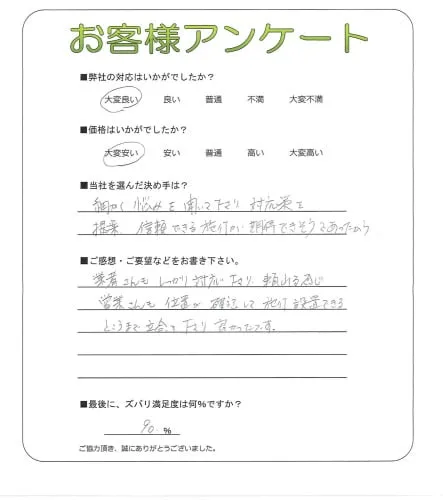 お客様アンケート
■弊社の対応はいかがでしたか？
大変良い 良い 普通 不満 大変不満
■価格はいかがでしたか？
大変安い 安い 普通 高い 大変高い
■当社を選んだ決め手は？
細かく悩みを聞いて下さり 対応策を
提案 信頼できる施行が期待できそうであったから
■ご感想・ご要望などをお書き下さい。
業者さんもしっかり対応下さり 頼れる感じ
営業さんも位置が確認して施行設置できる
ところまで立合って下さり 良かったです。
■最後に、ズバリ満足度は何%ですか？
90.%
ご協力頂き、誠にありがとうございました。